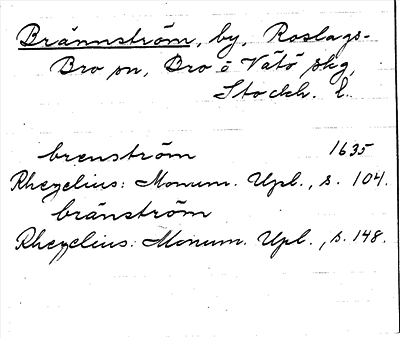 Brännström, by, Roslags-
Bro sn, Bro o Vätö skg,
Stockh. l.
brenström 1635
Rhezelius: Monum. Upl., s. 104.
bränström
Rhezelius: Monum. Upl., s. 148.